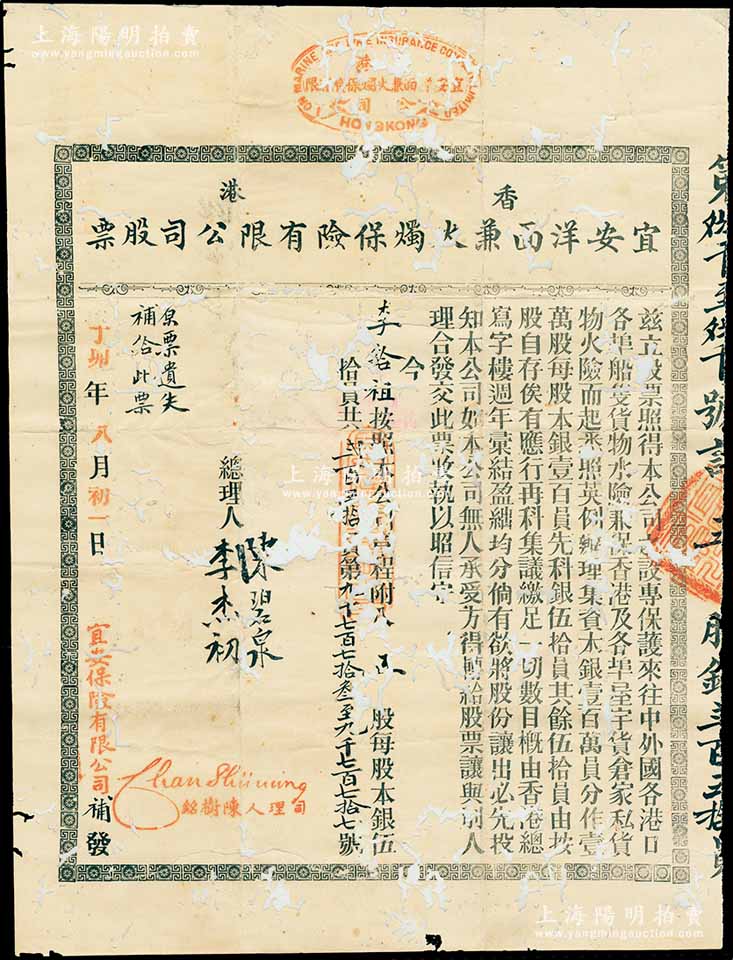 上海陽明拍賣
www.yangmingauction.com
MARINE INSURANCE LIMITED
HONGKONG
香港
宜安洋面兼火燭保險有限公司股票
茲立股票照得本公司設專保護來往中外國各港口
各埠船隻貨物水險兼保香港及各埠屋宇貨倉家私貨
物火險而起悉照英例辦理集資本銀壹百萬員分作壹
萬股每股本銀壹百員先科銀伍拾員其餘伍拾員由按
股自存俟有應行再科集議繳足一切數目概由香港總
寫字樓週年彙結盈絀均分倘有欲將股份讓出必先投
知本公司如本公司無人承受方得轉給股票讓與別人
理合發交此票收執以昭信守
今
李 祖按照本公司章程附入 五 股每股本銀伍
拾員共 貳百五拾 員第九千七百七拾叁至九千七百七拾七號
總理人 陳碧泉
李杰初
原票遺失
補給此票
丁卯年八月初一日
宜安保險有限公司補發
司理人陳樹銘
上海陽明拍賣
www.yangmingauction.com
上海陽明拍賣
www.yangmingauction.com